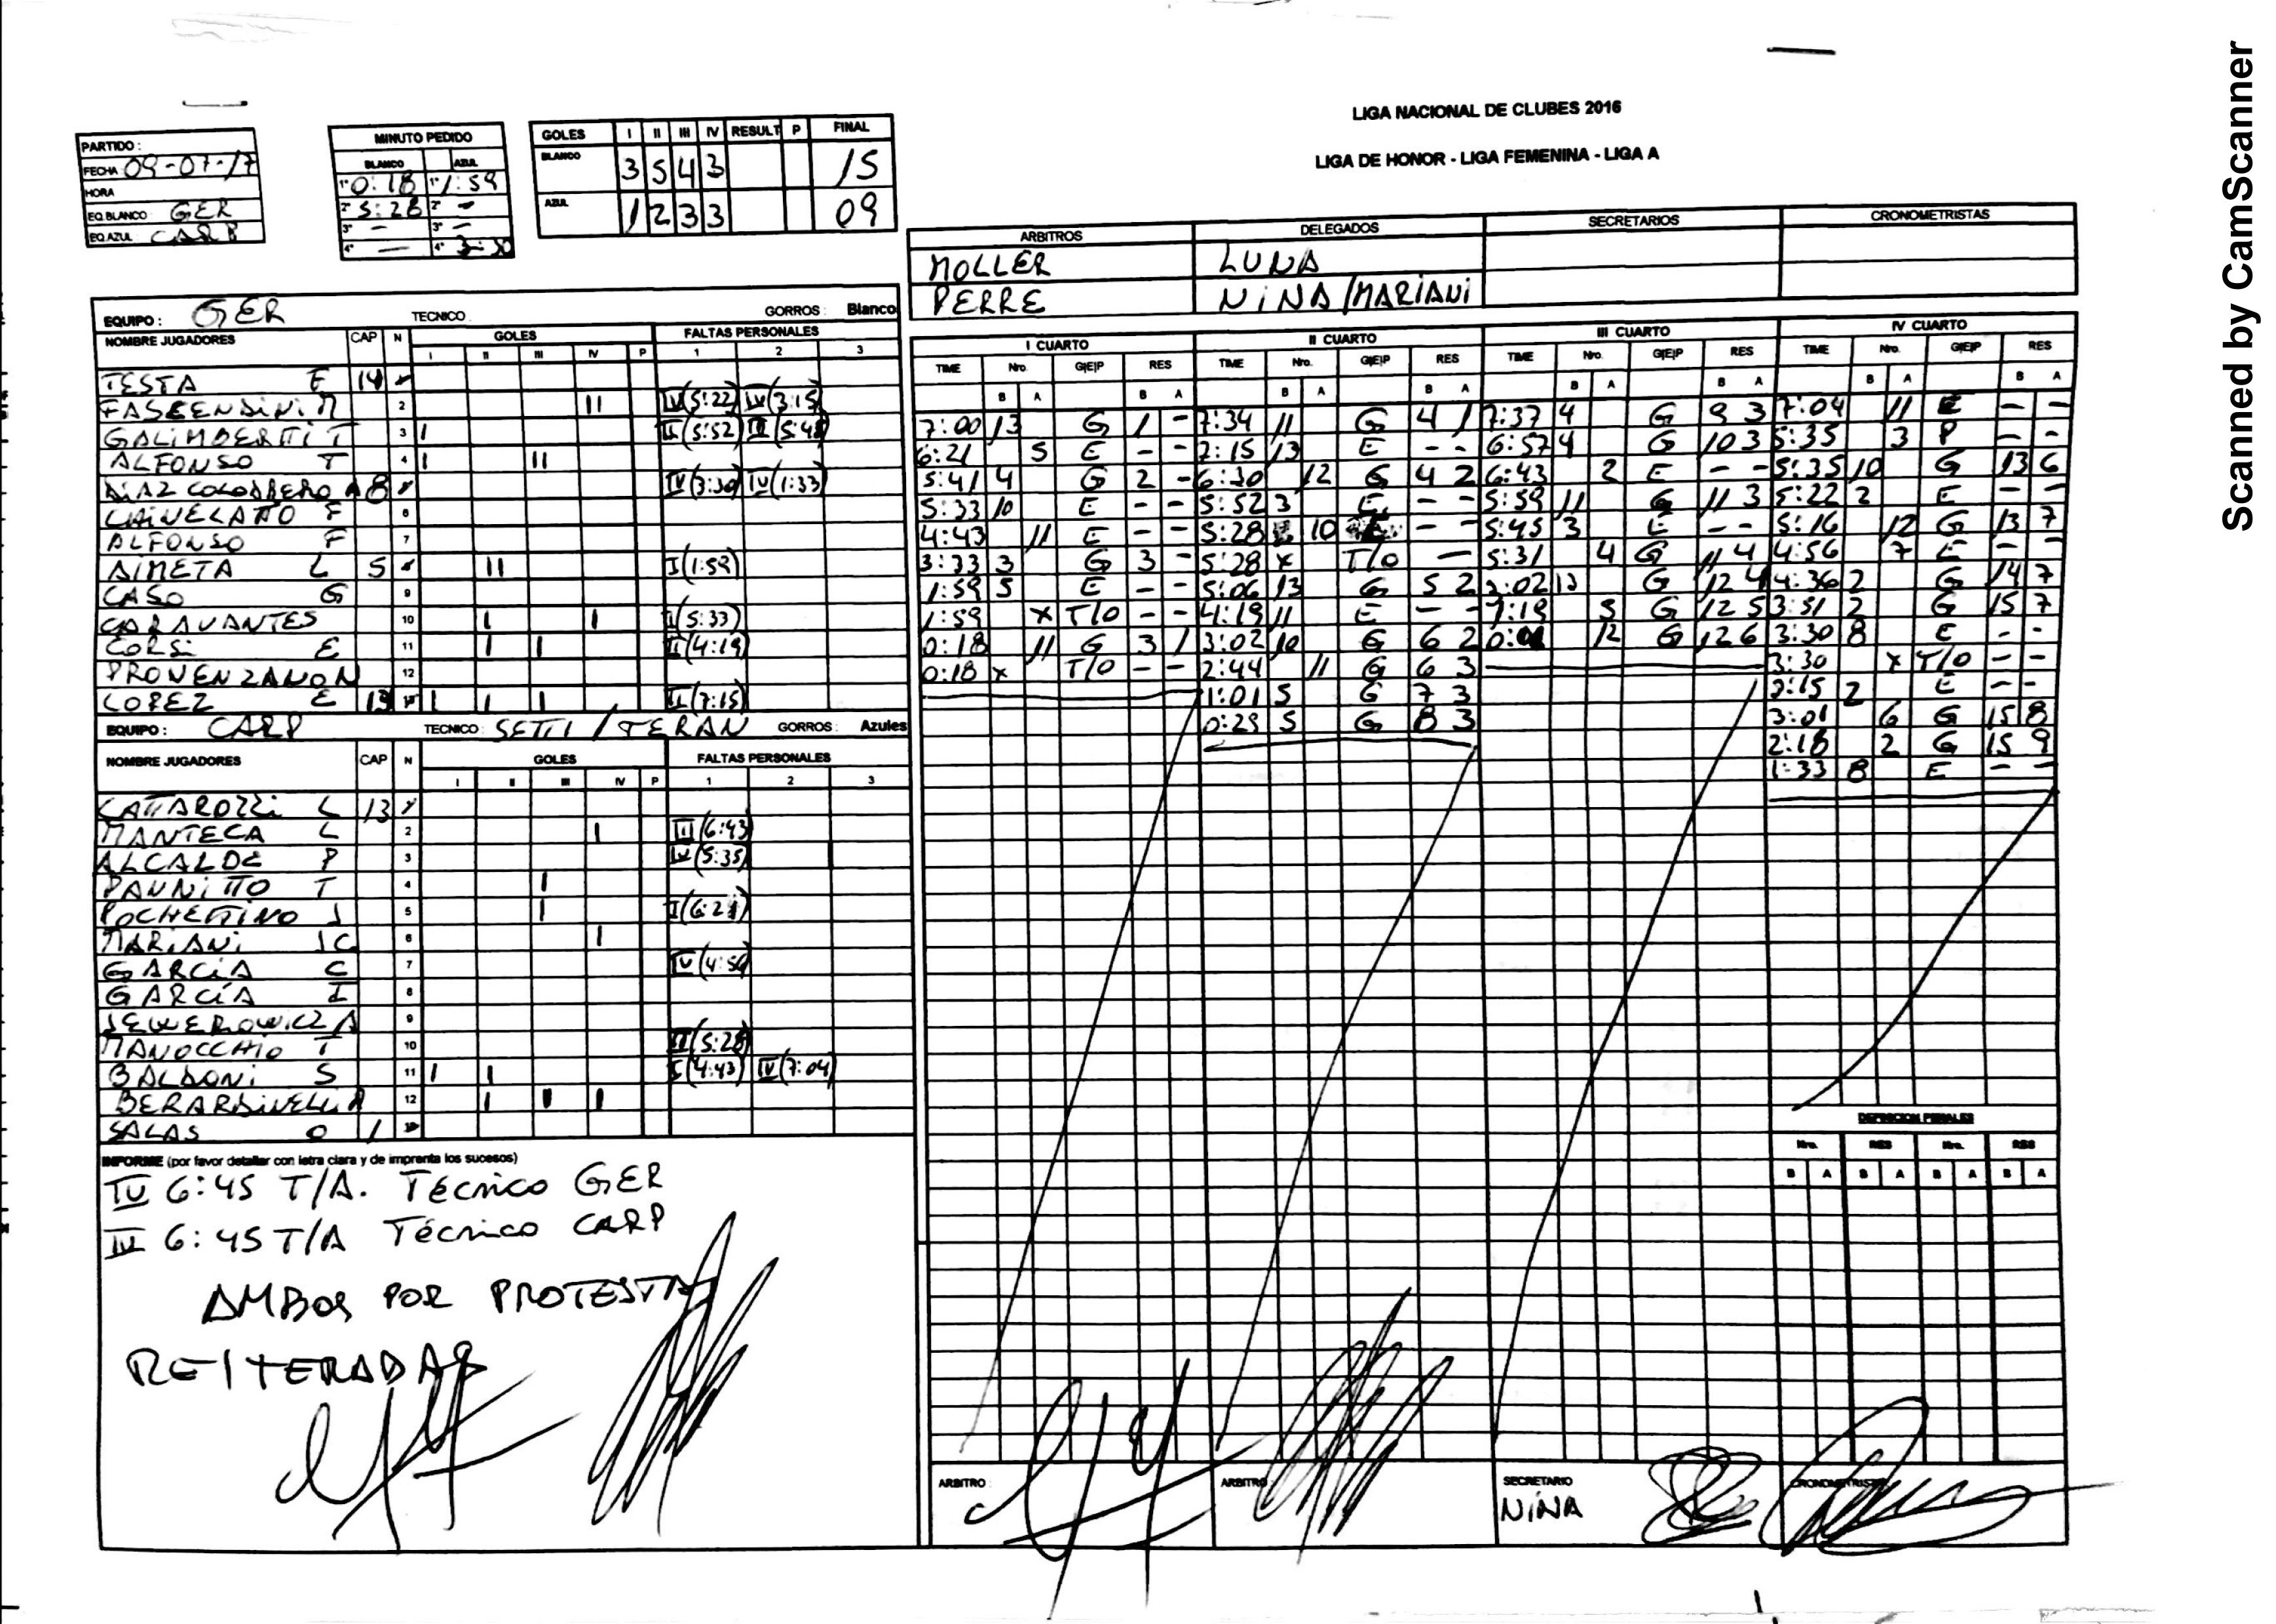 Scanned by CamScanner
LIGA NACIONAL DE CLUBES 2016
LIGA DE HONOR - LIGA FEMENINA - LIGA A
PARTIDO :
FECHA 09-07-17
HORA
EQ.BLANCO GER
EQ.AZUL CARP
MINUTO PEDIDO
BLANCO AZUL
1º 0:18 1º 1:59
2º 5:28 2º -
3º - 3º -
4º - 4º 3:30
GOLES I II III IV RESULT P FINAL
BLANCO 3 5 4 3 15
AZUL 1 2 3 3 09
ARBITROS DELEGADOS SECRETARIOS CRONOMETRISTAS
MOLLER LUNA
PERRE NINA/MARIANI
EQUIPO : GER TECNICO GORROS : Blanco
NOMBRE JUGADORES CAP N GOLES FALTAS PERSONALES
I II III IV P 1 2 3
TESTA E 14
2 II IV(5:22) IV(3:15)
GALIMBERTI T 3 I II(5:52) III(5:45)
ALFONSO T 4 I II
DIAZ COLODRERO A 8 IV(3:30) IV(1:33)
F 6
ALFONSO F 7
DIMETA L 5 II I(1:59)
CASO G 9
CARAVANTES 10 I I I(5:33)
CORSI E 11 I I II(4:19)
PROVENZANO N 12
LOPEZ E 13 I I I II(7:15)
EQUIPO : CARP TECNICO : SETTI / TERAN GORROS : Azules
NOMBRE JUGADORES CAP N GOLES FALTAS PERSONALES
I II III IV P 1 2 3
CATTAROZZI L 13
MANTECA L 2 I III(6:43)
ALCALDE P 3 IV(5:35)
PANNITTO T 4 I
POCHETTINO J 5 I I(6:21)
MARIANI JC 6 I
GARCÍA C 7 IV(4:56)
GARCÍA I 8
9
MANOCCHIO T 10 II(5:28)
BALDONI S 11 I I I(4:43) IV(7:04)
BERARDINELLI A 12 I I I
SALAS O 1
INFORME (por favor detallar con letra clara y de imprenta los sucesos)
IV 6:45 T/A. Técnico GER
IV 6:45 T/A Técnico CARP
AMBOS POR PROTESTAS
REITERADAS
I CUARTO
TIME Nro. G|E|P RES
B A B A
7:00 13 G 1 -
6:21 5 E - -
5:41 4 G 2 -
5:33 10 E - -
4:43 11 E - -
3:33 3 G 3 -
1:59 5 E - -
1:59 x T/O - -
0:18 11 G 3 1
0:18 x T/O - -
II CUARTO
TIME Nro. G|E|P RES
B A B A
7:34 11 G 4 1
7:15 13 E - -
6:30 12 G 4 2
5:52 3 E - -
5:28 10 E - -
5:28 x T/O -
5:06 13 G 5 2
4:19 11 E - -
3:02 10 G 6 2
2:44 11 G 6 3
1:01 5 G 7 3
0:29 5 G 8 3
III CUARTO
TIME Nro. G|E|P RES
B A B A
7:37 4 G 9 3
6:57 4 G 10 3
6:43 2 E - -
5:59 11 G 11 3
5:45 3 E - -
5:31 4 G 11 4
2:02 13 G 12 4
1:19 5 G 12 5
12 G 12 6
IV CUARTO
TIME Nro. G|E|P RES
B A B A
7:04 11 E - -
5:35 3 P - -
5:35 10 G 13 6
5:22 2 E - -
5:16 12 G 13 7
4:56 7 E - -
4:36 2 G 14 7
3:51 2 G 15 7
3:30 8 E - -
3:30 x T/O - -
3:15 2 E - -
3:01 6 G 15 8
2:18 2 G 15 9
1:33 8 E - -
DEFINICION PENALES
Nro. RES Nro. RES
B A B A B A B A
ARBITRO :
ARBITRO :
SECRETARIO
NINA
CRONOMETRISTA